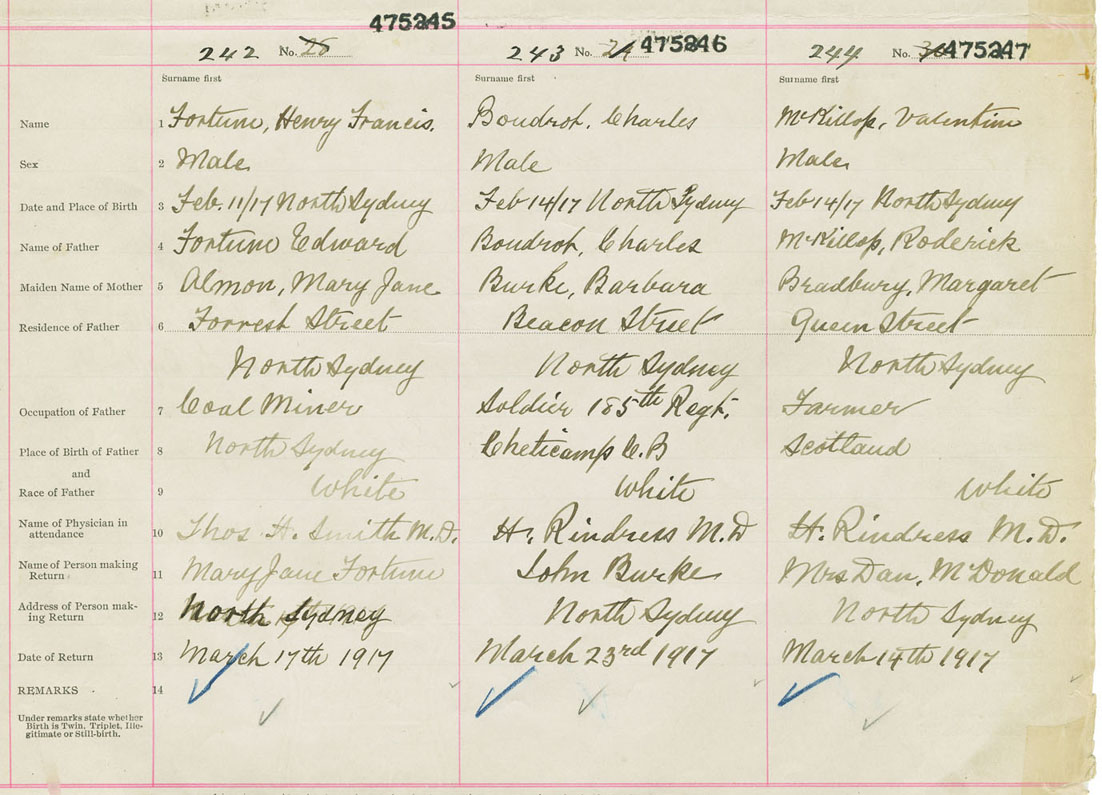 475245
242 No. 28
243 No. 29 475246
244 No. 30 475247
Surname first Surname first Surname first
Name 1 Fortune, Henry Francis. Boudrot, Charles McKillop, Valentine
Sex 2 Male Male Male
Date and Place of Birth 3 Feb. 11/17 North Sydney Feb 14/17 North Sydney Feb 14/17 North Sydney
Name of Father 4 Fortune Edward Boudrot, Charles McKillop, Roderick
Maiden Name of Mother 5 Almon, Mary Jane Burke, Barbara Bradbury, Margaret
Residence of Father 6 Forrest Street Beacon Street Queen Street
North Sydney North Sydney North Sydney
Occupation of Father 7 Coal Miner Soldier 185th Regt. Farmer
Place of Birth of Father 8 North Sydney Cheticamp C.B Scotland
and
Race of Father 9 White White White
Name of Physician in
attendance 10 Thos. H. Smith M.D. H. Rindress M.D H. Rindress M.D.
Name of Person making
Return 11 Mary Jane Fortune John Burke Mrs Dan, McDonald
Address of Person mak-
ing Return 12 North Sydney North Sydney North Sydney
Date of Return 13 March 17th 1917 March 23rd 1917 March 14th 1917
REMARKS 14
Under remarks state whether
Birth is Twin, Triplet, Ille-
gitimate or Still-birth.